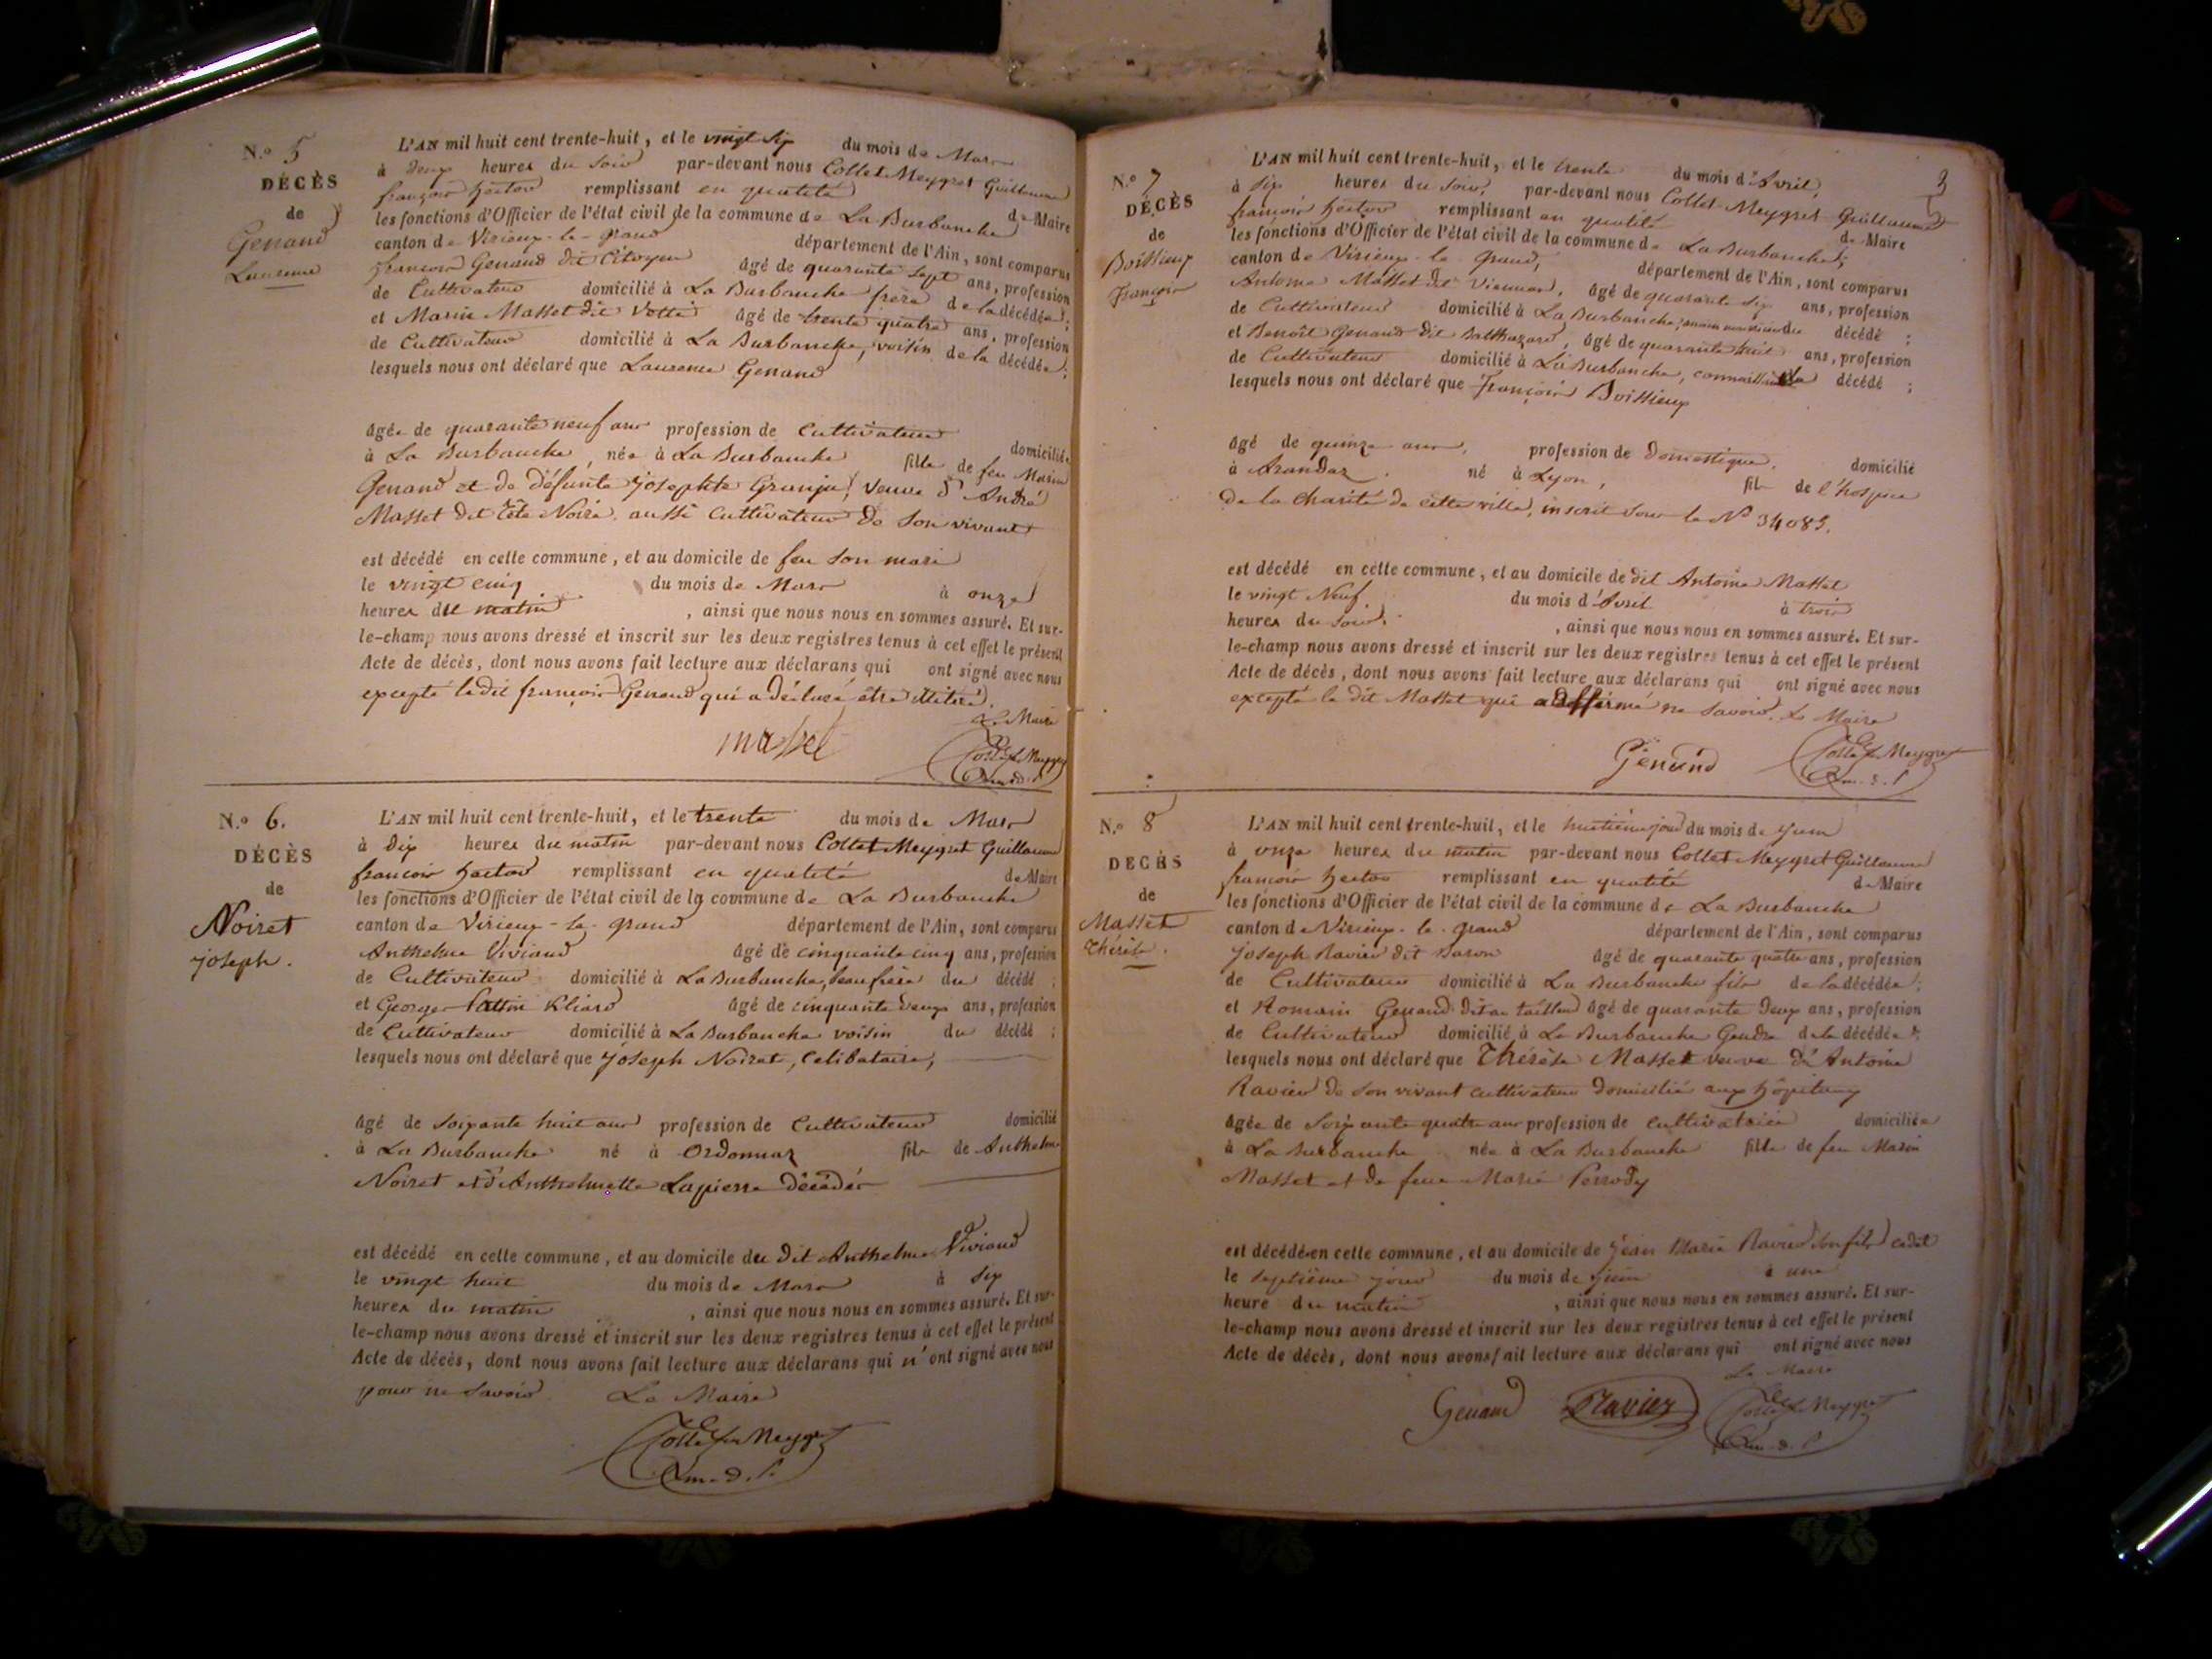 N.o 5
DÉCÈS
de
Genand
Laurence
L'AN mil huit cent trente-huit, et le vingt six du mois de Mars
à deux heures du soir par-devant nous Collet-Meygret Guillaume
françois hector remplissant en qualité de Maire
les fonctions d'Officier de l'état civil de la commune de La Burbanche
canton de Virieux-le-grand département de l'Ain, sont comparus
françois Genand dit Citoyen âgé de quarante sept ans, profession
de Cultivateur domicilié à La Burbanche frère de la décédée;
et Marin Masset dit Votti âgé de trente quatre ans, profession
de Cultivateur domicilié à La Burbanche, voisin de la décédée;
lesquels nous ont déclaré que Laurence Genand
âgée de quarante neuf ans profession de Cultivateur domiciliée
à La Burbanche née à La Burbanche fille de feu Marin
Genand et de défunte Josephte Granju, veuve d'André
Masset dit Tête Noire, aussi cultivateur de son vivant
est décédé en cette commune, et au domicile de feu son mari
le vingt cinq du mois de Mars à onze
heures du matin, ainsi que nous nous en sommes assuré. Et sur-
le-champ nous avons dressé et inscrit sur les deux registres tenus à cet effet le présent
Acte de décès, dont nous avons fait lecture aux déclarans qui ont signé avec nous
excepté ledit françois Genand qui a déclaré être illitéré.
Le Maire
masset
Collet Meygret
N.o 6.
DÉCÈS
de
Noiret
joseph.
L'AN mil huit cent trente-huit, et le trente du mois de Mars
à dix heures du matin par-devant nous Collet-Meygret Guillaume
françois hector remplissant en qualité de Maire
les fonctions d'Officier de l'état civil de la commune de La Burbanche
canton de Virieux-le-grand département de l'Ain, sont comparus
Anthelme Viviand âgé de cinquante cinq ans, profession
de Cultivateur domicilié à La Burbanche, beau frère du décédé;
et George âgé de cinquante deux ans, profession
de Cultivateur domicilié à La Burbanche voisin du décédé;
lesquels nous ont déclaré que Joseph Noiret, Celibataire,
âgé de soixante huit ans profession de Cultivateur domicilié
à La Burbanche né à Ordonnaz fils de Anthelme
Noiret et d'Anthelmette Lapierre décédés
est décédé en cette commune, et au domicile du dit Anthelme Viviand
le vingt huit du mois de Mars à six
heures du matin, ainsi que nous nous en sommes assuré. Et sur-
le-champ nous avons dressé et inscrit sur les deux registres tenus à cet effet le présent
Acte de décès, dont nous avons fait lecture aux déclarans qui n'ont signé avec nous
pour ne savoir. Le Maire
Collet Meygret
3
N.o 7
DÉCÈS
de
Boissieux
françois
L'AN mil huit cent trente-huit, et le trente du mois d'Avril,
à six heures du soir, par-devant nous Collet-Meygret Guillaume
françois hector remplissant en qualité de Maire
les fonctions d'Officier de l'état civil de la commune de La Burbanche,
canton de Virieux-le-grand, département de l'Ain, sont comparus
Antoine Masset dit âgé de quarante six ans, profession
de Cultivateur domicilié à La Burbanche, du décédé;
et Benoît Genand dit Balthazard, âgé de quarante huit ans, profession
de Cultivateur domicilié à La Burbanche, connaissant le décédé;
lesquels nous ont déclaré que François Boissieux
âgé de quinze ans, profession de domestique, domicilié
à Arandaz né à Lyon, fils de l'hospice
de la Charité de cette ville, inscrit sous le No 34083.
est décédé en cette commune, et au domicile de dit Antoine Masset
le vingt Neuf du mois d'Avril à trois
heures du soir, ainsi que nous nous en sommes assuré. Et sur-
le-champ nous avons dressé et inscrit sur les deux registres tenus à cet effet le présent
Acte de décès, dont nous avons fait lecture aux déclarans qui ont signé avec nous
excepté le dit Masset qui a affirmé ne savoir. Le Maire
Genand
Collet Meygret
N.o 8
DÉCÈS
de
Masset
Thérèse.
L'AN mil huit cent trente-huit, et le huitième jour du mois de Juin
à onze heures du matin par-devant nous Collet-Meygret Guillaume
françois hector remplissant en qualité de Maire
les fonctions d'Officier de l'état civil de la commune de La Burbanche
canton de Virieux-le-grand département de l'Ain, sont comparus
Joseph Ravier dit Baron âgé de quarante quatre ans, profession
de Cultivateur domicilié à La Burbanche fils de la décédée;
et Romain Genand dit au taillend âgé de quarante deux ans, profession
de Cultivateur domicilié à La Burbanche Gendre de la décédée;
lesquels nous ont déclaré que Thérèse Masset veuve d'Antoine
Ravier de son vivant cultivateur domicilié aux hôpitaux
âgée de soixante quatre ans profession de cultivatrice domiciliée
à La Burbanche née à La Burbanche fille de feu Marin
Masset et de feue Marie Perrody
est décédée en cette commune, et au domicile de Jean Marie Ravier son fils cadet
le septième jour du mois de Juin à une
heure du matin, ainsi que nous nous en sommes assuré. Et sur-
le-champ nous avons dressé et inscrit sur les deux registres tenus à cet effet le présent
Acte de décès, dont nous avons fait lecture aux déclarans qui ont signé avec nous
Le Maire
Genand Ravier Collet Meygret